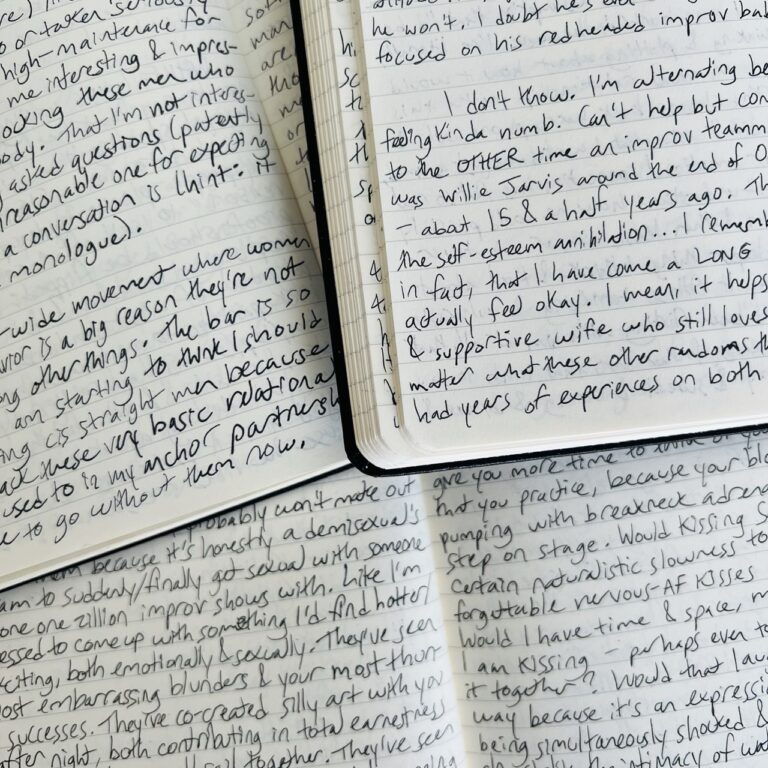 e) li
o or taken seriously
high-maintenance for
me interesting & impres-
ocking these men who
ody. That I'm not interes-
asked questions (patently
reasonable one for expecting
a conversation is (hint: it
monologue).
-wide movement where women
vior is a big reason they're not
ong other things. The bar is so
am starting to think I should
ting cis straight men because
ack these very basic relational
used to in my anchor partnersh
e to go without them now.
so
man
are
tho
me
or
t
hi
Sc
th
sp
o
he won't. I doubt he's eve
focused on his redheaded improv bab
I don't know. I'm alternating be
feeling kinda numb. Can't help but con
to the OTHER time an improv teamm
was Willie Jarvis around the end of O
– about 15 & a half years ago. Th
the self-esteem annihilation... I rememb
in fact, that I have come a LONG
actually feel okay. I mean, it helps
& supportive wife who still loves
matter what these other randoms th
had years of experiences on both
probably won't make out
hem because it's honestly a demisexual's
am to suddenly/finally get sexual with someone
one one zillion improv shows with. Like I'm
essed to come up with something I'd find hotter/
citing, both emotionally & sexually. They've seen
ost embarrassing blunders & your most thun-
successes. They've co-created silly art with you
after night, both contributing in total earnestness
fail together. They've seen
give you more time to think of yo
that you practice, because your blo
pumping with breakneck adrena
step on stage. Would kissing s
certain naturalistic slowness to
forgettable nervous-AF kisses
Would I have time & space, m
I am kissing – perhaps even to
it together? Would that lau
way because it's an expressi
being simultaneously shocked &
intimacy of wa